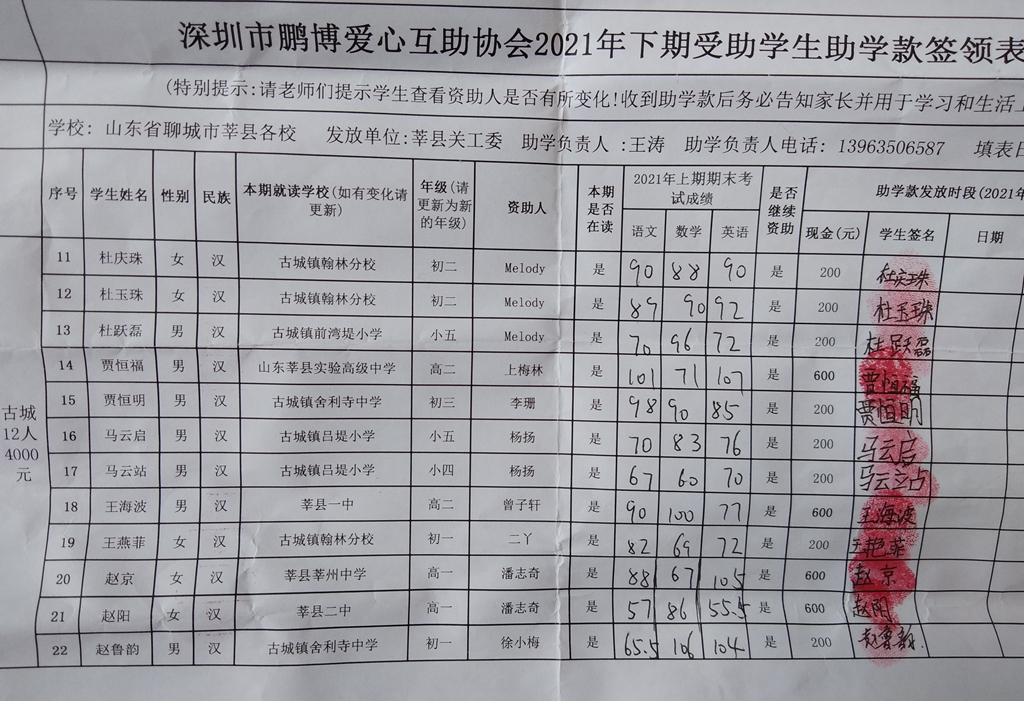 深圳市鹏博爱心互助协会2021年下期受助学生助学款签领表
(特别提示:请老师们提示学生查看资助人是否有所变化!收到助学款后务必告知家长并用于学习和生活上
学校: 山东省聊城市莘县各校 发放单位:莘县关工委 助学负责人 :王涛 助学负责人电话: 13963506587 填表日
序号 学生姓名 性别 民族 本期就读学校(如有变化请更新) 年级(请更新为新的年级) 资助人 本期是否在读 2021年上期期末考试成绩 是否继续资助 助学款发放时段(2021年
语文 数学 英语 现金(元) 学生签名 日期
11 杜庆珠 女 汉 古城镇翰林分校 初二 Melody 是 90 88 90 是 200 杜庆珠
12 杜玉珠 女 汉 古城镇翰林分校 初二 Melody 是 89 90 92 是 200 杜玉珠
13 杜跃磊 男 汉 古城镇前湾堤小学 小五 Melody 是 70 96 72 是 200 杜跃磊
14 贾恒福 男 汉 山东莘县实验高级中学 高二 上梅林 是 101 71 107 是 600 贾恒福
15 贾恒明 男 汉 古城镇舍利寺中学 初三 李珊 是 98 90 85 是 200 贾恒明
16 马云启 男 汉 古城镇吕堤小学 小五 杨扬 是 70 83 76 是 200 马云启
17 马云站 男 汉 古城镇吕堤小学 小四 杨扬 是 67 60 70 是 200 马云站
18 王海波 男 汉 莘县一中 高二 曾子轩 是 90 100 77 是 600 王海波
19 王燕菲 女 汉 古城镇翰林分校 初一 二丫 是 82 69 72 是 200 王艳菲
20 赵京 女 汉 莘县莘州中学 高一 潘志奇 是 88 67 105 是 600 赵京
21 赵阳 女 汉 莘县二中 高一 潘志奇 是 57 86 55.5 是 600 赵阳
22 赵鲁韵 男 汉 古城镇舍利寺中学 初一 徐小梅 是 65.5 106 104 是 200 赵鲁韵
古城
12人
4000
元